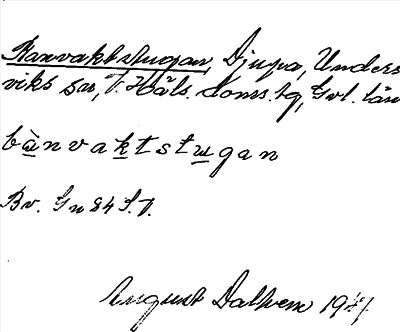 Banvaktstugan, Djupa, Unders
viks sn, V. Häls. doms. tg, Gvl. län
bànvaktstugan
Bv. Gn 84 S.V.
August Dalhem 19